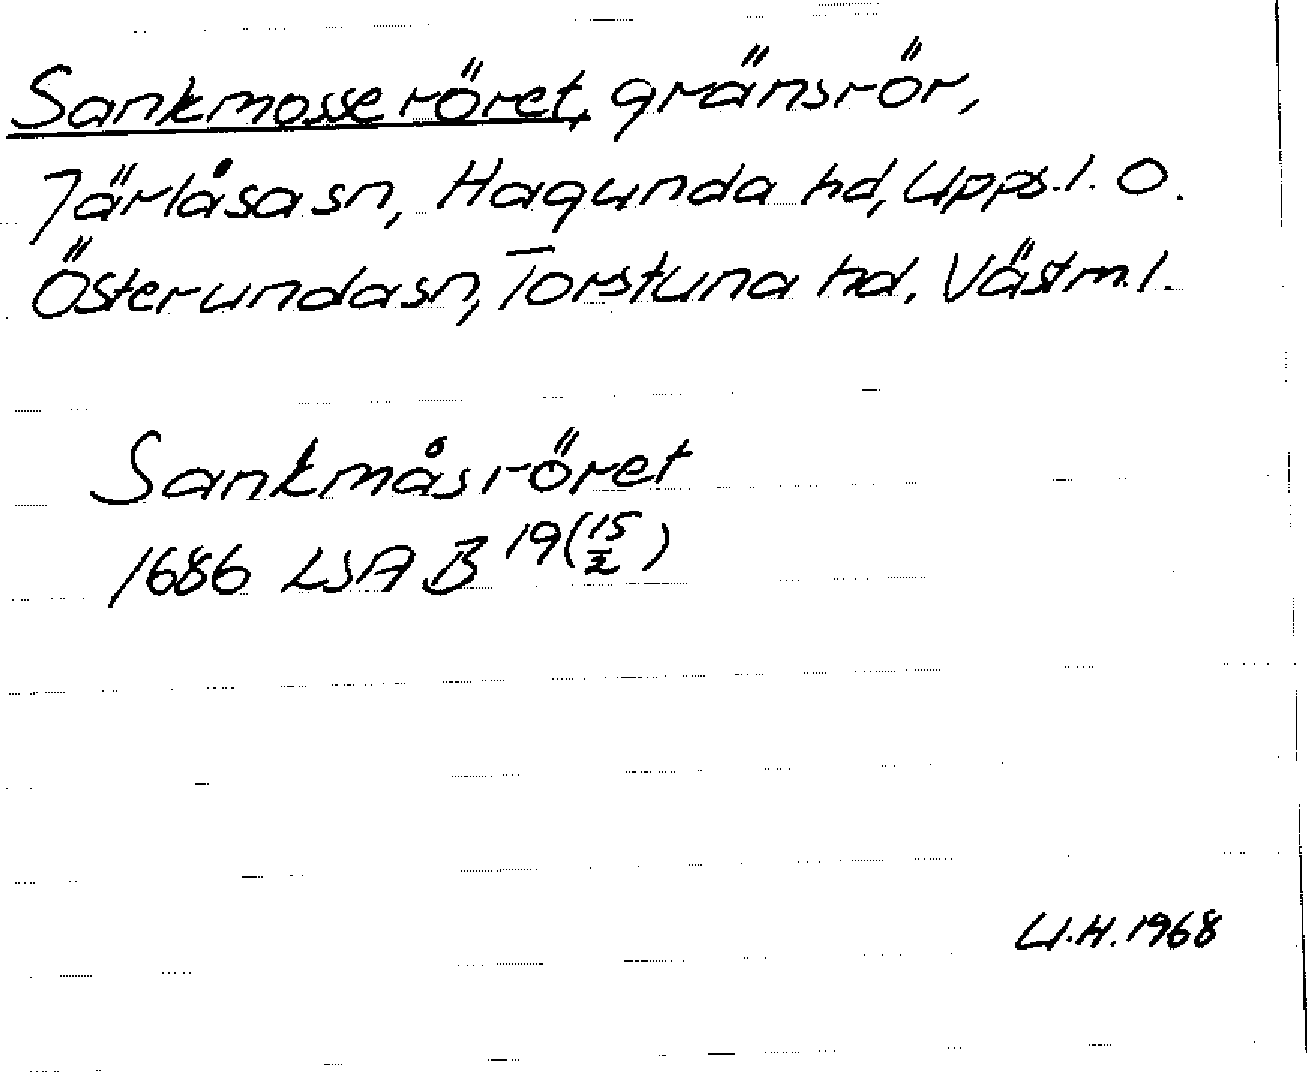 Sankmosseröret, gränsrör,
Järlåsa sn, Hagunda hd, Upps.l. O.
Österunda sn, Torstuna hd. Västm.l.
Sankmåsröret
1686 LSA B 19(15/2)
U.H. 1968